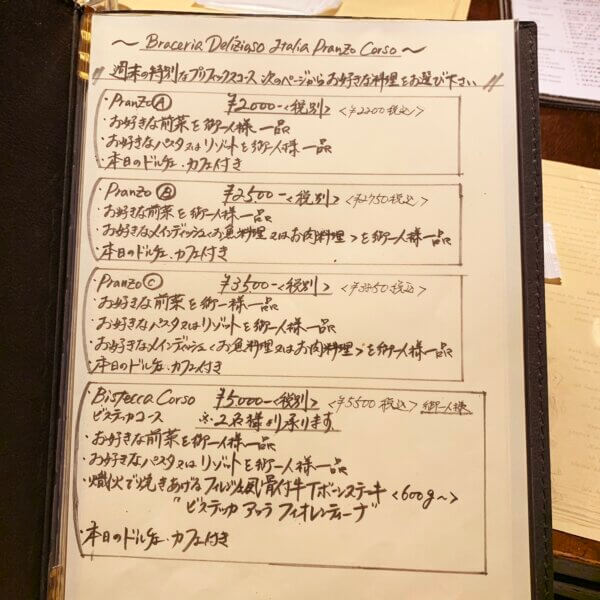 ～ Braceria Delizioso Italia Pranzo Corso ～
〃週末の特別なプリフィックスコース 次のページからお好きな料理をお選び下さい〃
・Pranzo Ⓐ ¥2000-<税別> <¥2200税込>
・お好きな前菜を御一人様一品
・お好きなパスタ又はリゾットを御一人様一品
・本日のドルチェ、カフェ付き
・Pranzo Ⓑ ¥2500-<税別> <¥2750税込>
・お好きな前菜を御一人様一品
・お好きなメインディッシュ<お魚料理又はお肉料理>を御一人様一品
・本日のドルチェ、カフェ付き
・Pranzo Ⓒ ¥3500-<税別> <¥3850税込>
・お好きな前菜を御一様一品
・お好きなパスタ又はリゾットを御一人様一品
・お好きなメインディッシュ<お魚料理又はお肉料理>を御一人様一品
・本日のドルチェ、カフェ付き
・Bistecca Corso ¥5000-<税別> <¥5500税込> 御一人様
ビステッカコース ※2名様より承ります
・お好きな前菜を御一人様一品
・お好きなパスタ又はリゾットを御一人様一品
・熾火で焼きあげるフィレンツェ風骨付牛Tボーンステーキ<600g～>
"ビステッカ アッラ フィオレンティーナ"
・本日のドルチェ、カフェ付き